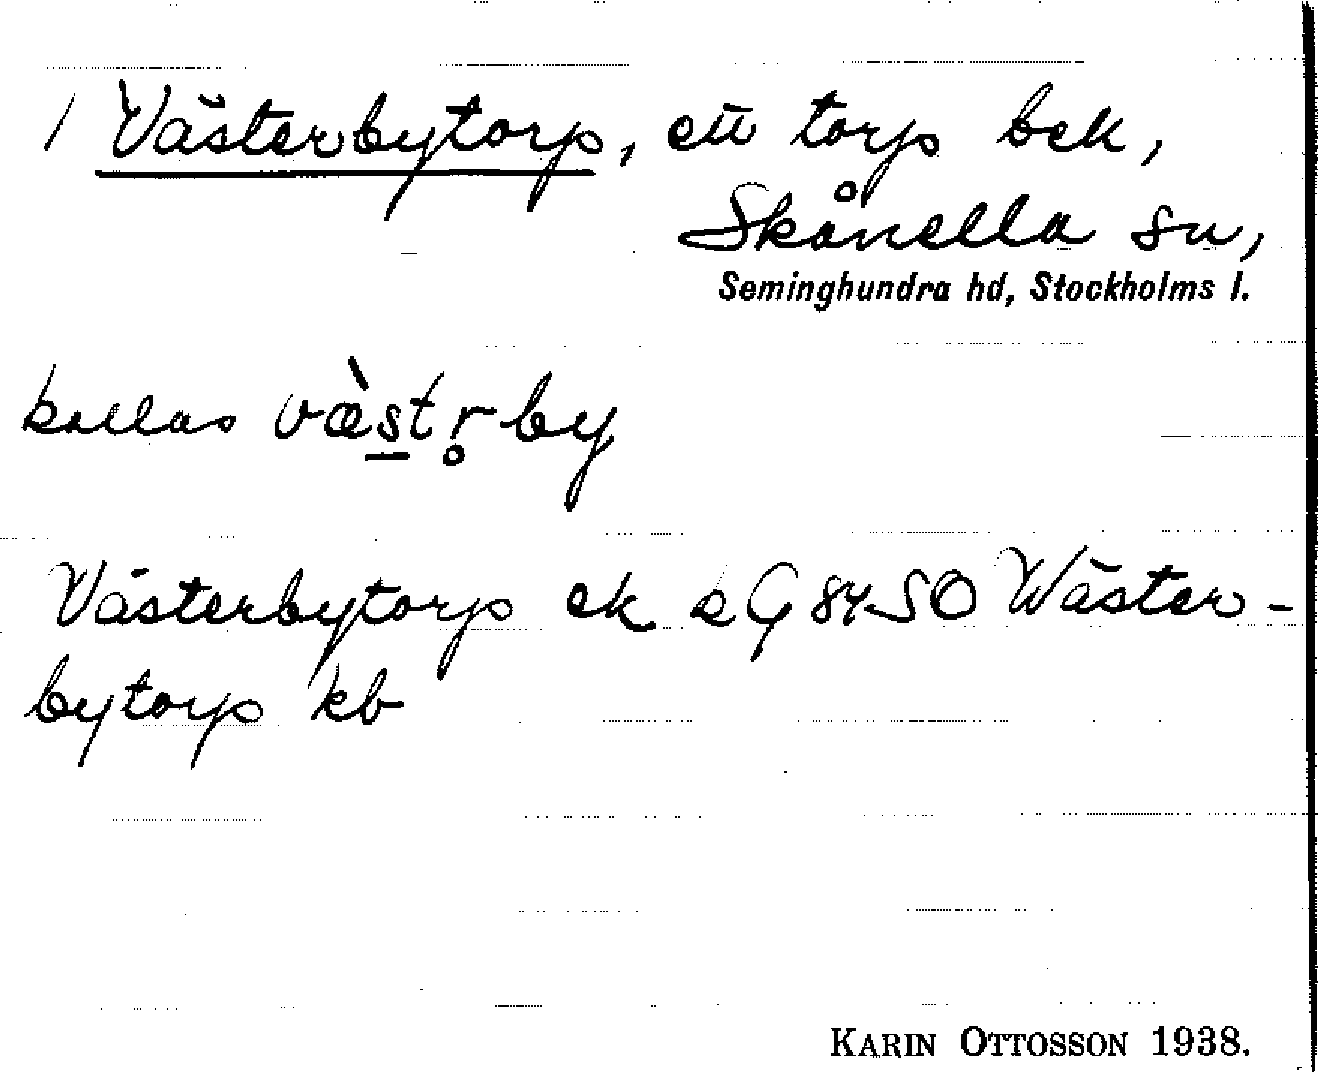 / Västerbytorp, ett torp bek,
Skånella sn,
Seminghundra hd, Stockholms l.
kallas væ̀st̠r̥by
Västerbytorp ek 84 SO Wäster-
bytorp kb
KARIN OTTOSSON 1938.